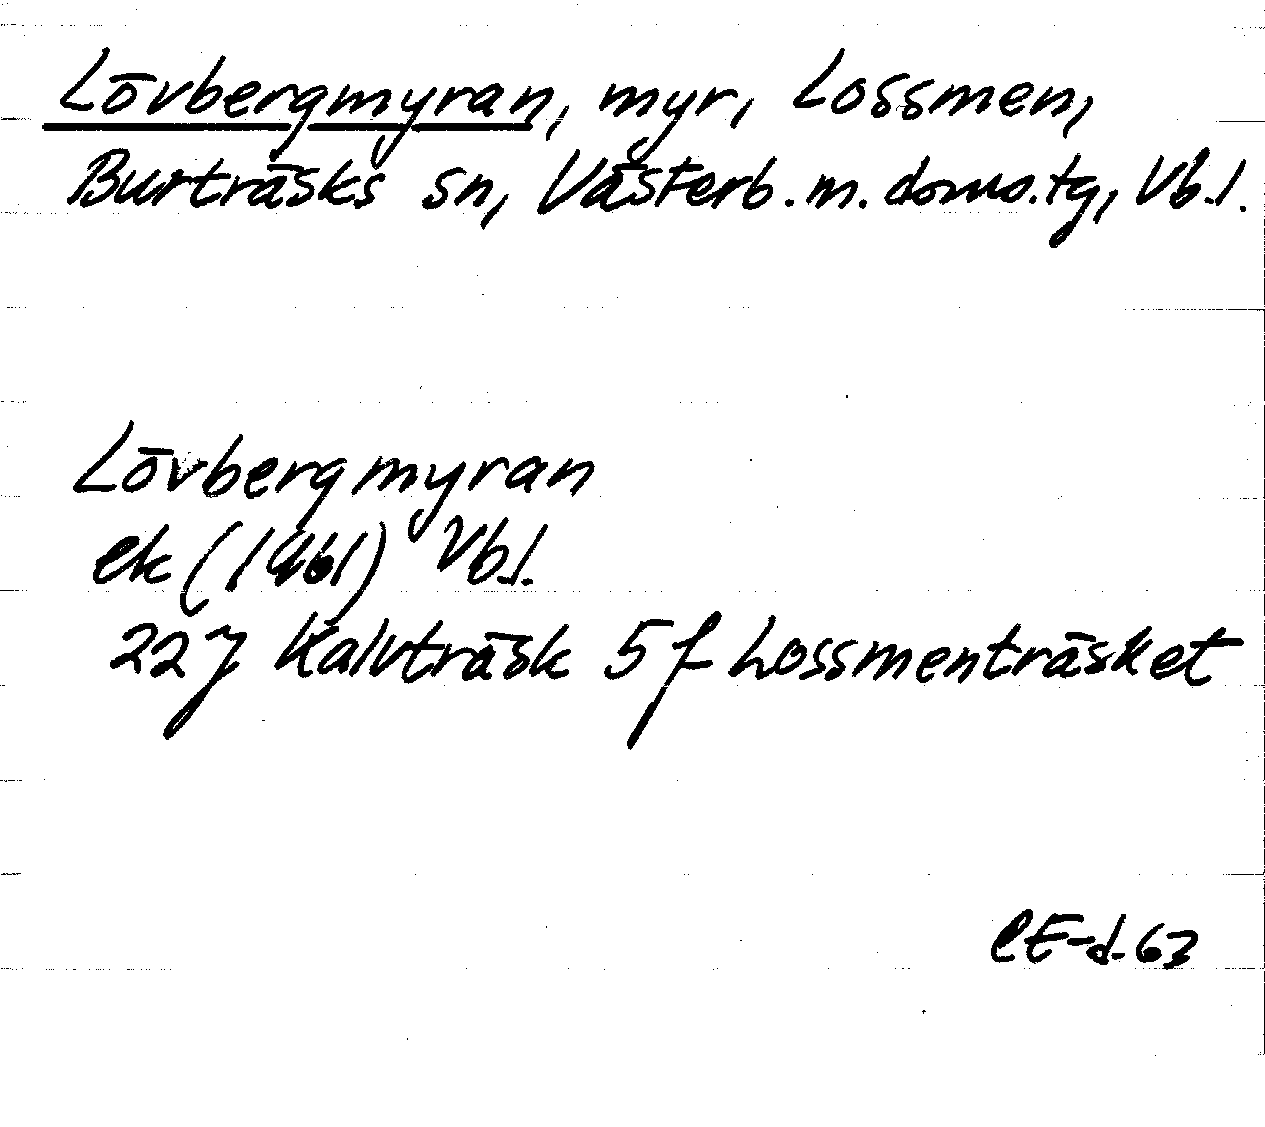 Lövbergmyran, myr, Lossmen,
Burträsks sn, Västerb. m. doms.tg, Vb.l.
Lövbergmyran
ek (1961) Vb.l.
22J Kalvträsk 5 f Lossmenträsket
CE-d. 63